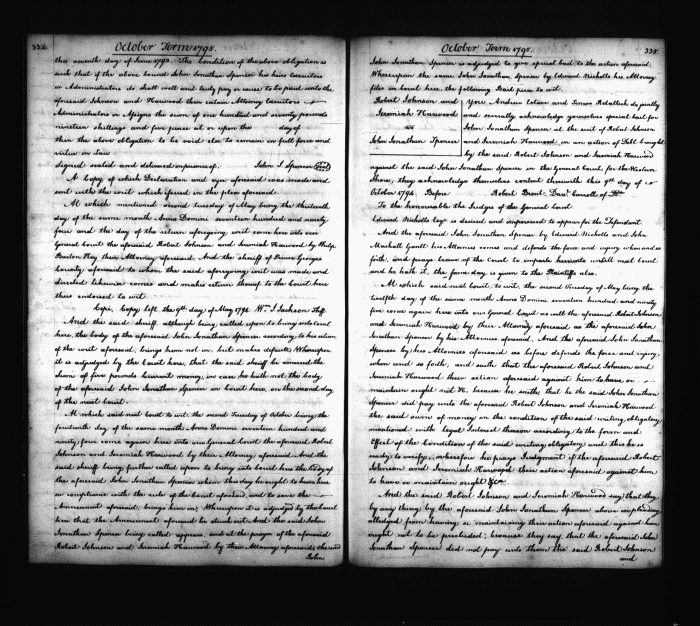 334.
October Term 1795.
this seventh day of June 1793. The Condition of the above obligation is
such that if the above bound John Jonathan Spencer his heirs Executors
or Administrators do shall well and truly pay or cause to be paid unto the
aforesaid Johnson and Harwood their certain Attorney Executors
Administrators or Assigns the sum of one hundred and seventy pounds
nineteen shillings and five pence at or upon the day of
then the above obligation to be void else to remain in full force and
virtue in law
signed sealed and delivered in presence of. John J Spencer (seal)
A Copy of which Declaration and oyer aforesaid was made and
sent with the writ which issued in the plea aforesaid.
At which mentioned second Tuesday of May being the thirteenth
day of the same month Anno Domini seventeen hundred and ninety
four and the day of the return aforegoing writ come here into our
General Court the aforesaid Robert Johnson and Jeremiah Harwood by Philip
Barton Key their Attorney aforesaid. And the sheriff of Prince Georges
County aforesaid to whom the said aforegoing writ was made and
directed likewise comes and makes return thereof to the Court here
thus endorsed to wit
Cepi, Copy left the 9th day of May 1794 Wm J. Jackson Shff
And the said sheriff although being called upon to bring into Court
here, the body of the aforesaid John Jonathan Spencer according to his return
of the writ aforesaid, brings him not in, but makes default, Whereupon
it is adjudged by the Court here, that the said sheriff be amerced the
sum of five pounds current money, in case he hath not the body
of the aforesaid John Jonathan Spencer in Court here, on the second day
of the next Court.
At which said next Court to wit the second Tuesday of October being the
fourteenth day of the same month Anno Domini seventeen hundred and
ninety four come again here into our General Court the aforesaid Robert
Johnson and Jeremiah Harwood by their Attorney aforesaid And the
said sheriff being further called upon to bring into Court here the body of
the aforesaid John Jonathan Spencer whom this day he ought to have here
in compliance with the rule of the Court aforesaid, and to save the
Amerciament aforesaid, brings him in: Whereupon it is adjudged by the Court
here that the Amerciament aforesaid be struck out And the said John
Jonathan Spencer being called appears, and at the prayer of the aforesaid
Robert Johnson and Jeremiah Harwood by their Attorney aforesaid, the said
John
October Term 1795.
335.
John Jonathan Spencer is adjudged to give special bail to the action aforesaid.
Whereupon the same John Jonathan Spencer by Edward Nicholls his Attorney
files in Court here, the following Bail piece to wit.
Robert Johnson and
Jeremiah Harwood
vs
John Jonathan Spencer
You Andrew and Simon do jointly
and severally acknowledge yourselves special bail for
John Jonathan Spencer at the suit of Robert Johnson
and Jeremiah Harwood in an action of Debt brought
by the said Robert Johnson and Jeremiah Harwood
against the said John Jonathan Spencer in the General Court for the Western
Shore, they acknowledge themselves content therewith this 9th day of
October 1794. Before Robert Brent, Danl. Carroll of
To the honourable the Judges of the General Court
Edward Nicholls Esqr is desired and impowered to appear for the Defendant.
And the aforesaid John Jonathan Spencer by Edward Nicholls and John
Mashall Gantt his Attornies comes and defends the force and injury when and so
forth, and prays leave of the Court to imparle hereunto until next Court
and he hath it, the same day is given to the Plaintiffs also.
At which said next Court, to wit, the second Tuesday of May being the
twelfth day of the same month Anno Domini seventeen hundred and ninety
five come again here into our General Court as well the aforesaid Robert Johnson
and Jeremiah Harwood by their Attorney aforesaid as the aforesaid John
Jonathan Spencer by his Attornies aforesaid. And the aforesaid John Jonathan
Spencer by his Attornies aforesaid as before defends the force and injury,
when and so forth, and saith that the aforesaid Robert Johnson and
Jeremiah Harwood their action aforesaid against him to have or
maintain ought not &c. because he saith, that he the said John Jonathan
Spencer did pay unto the aforesaid Robert Johnson and Jeremiah Harwood
the said sum of money in the condition of the said writing obligatory
mentioned with legal Interest thereon according to the form and
Effect of the Condition of the said writing obligatory and this he is
ready to verify; wherefore he prays Judgment if the aforesaid Robert
Johnson and Jeremiah Harwood their action aforesaid against him
to have or maintain ought &ca.
And the said Robert Johnson and Jeremiah Harwood say that they
by any thing by the aforesaid John Jonathan Spencer above in pleading
alledged from having or maintaining their action aforesaid against him
ought not to be precluded; because they say, that the aforesaid John
Jonathan Spencer did not pay unto them the said Robert Johnson
and